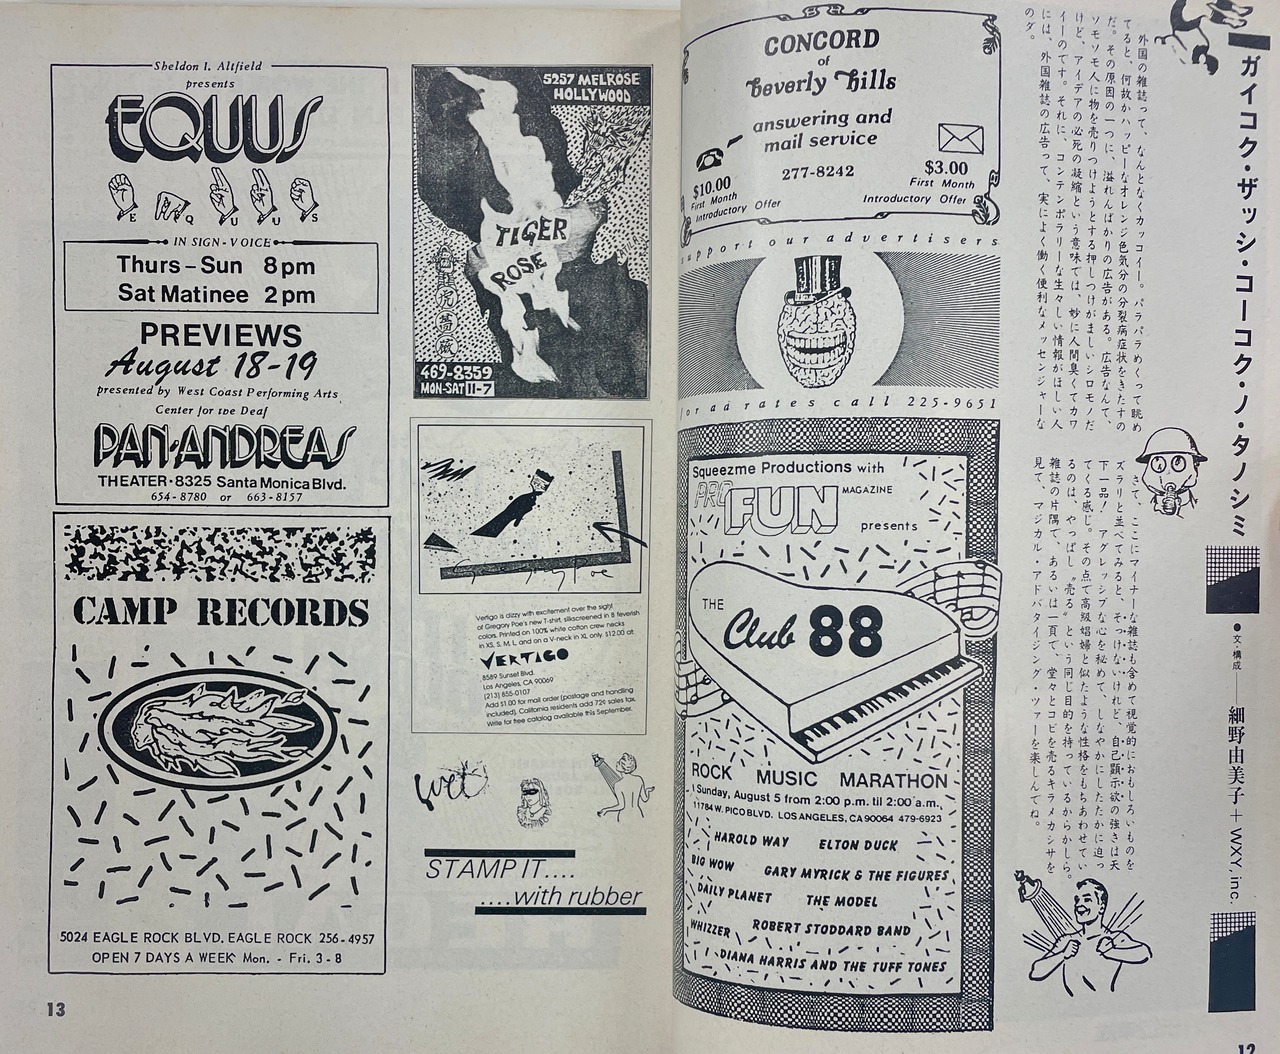 ガイコク・ザッシ・コーコク・ノ・タノシミ
●文・構成——細野由美子+WXY,inc.
外国の雑誌って、なんとなくカッコイー。パラパラめくって眺め
てると、何故かハッピーなオレンジ色気分の分裂病症状をきたすの
だ。その原因の一つに、溢れんばかりの広告がある。広告なんて、
ソモソモ人に物を売りつけようとする押しつけがましいシロモノだ
けど、アイデアの必死の凝縮という意味では、妙に人間臭くてカワ
イーのです。それに、コンテンポラリーな生々しい情報がほしい人
には、外国雑誌の広告って、実によく働く便利なメッセンジャーな
のダ。
さて、ここにマイナーな雑誌も含めて視覚的におもしろいものを
ズラリと並べてみると、そっけないけれど、自己顕示欲の強さは天
下一品！ アグレッシブな心を秘めて、しなやかにしたたかに迫っ
てくる感じ。その点で高級娼婦と似たような性格をもちあわせてい
るのは、やっぱし〝売る〟という同じ目的を持っているからかしら。
雑誌の片隅で、あるいは一頁で、堂々とコピを売るキラメカシサを
見て、マジカル・アドバタイジング・ツァーを楽しんでね。
CONCORD
of
Beverly Hills
answering and
mail service
277-8242
$10.00
First Month
Introductory Offer
$3.00
First Month
Introductory Offer
support our advertisers
for ad rates call 225-9651
Squeezme Productions with
PRO FUN MAGAZINE
presents
THE
Club 88
ROCK MUSIC MARATHON
Sunday, August 5 from 2:00 p.m. til 2:00 a.m.,
11784 W. PICO BLVD. LOS ANGELES, CA 90064 479-6923
HAROLD WAY ELTON DUCK
BIG WOW GARY MYRICK & THE FIGURES
DAILY PLANET THE MODEL
WHIZZER ROBERT STODDARD BAND
DIANA HARRIS AND THE TUFF TONES
12
5257 MELROSE
HOLLYWOOD
TIGER
ROSE
469-8359
MON-SAT 11-7
Vertigo is dizzy with excitement over the sight
of Gregory Poe's new T-shirt, silkscreened in 8 feverish
colors. Printed on 100% white cotton crew necks
in XS, S, M, L, and on a V-neck in XL only. $12.00 at:
VERTIGO
8589 Sunset Blvd.
Los Angeles, CA 90069
(213) 855-0107
Add $1.00 for mail order (postage and handling
included). California residents add 72¢ sales tax.
Write for free catalog available this September.
wet
STAMP IT....
....with rubber
Sheldon I. Altfield
presents
EQUUS
E Q U U S
IN SIGN-VOICE
Thurs–Sun 8pm
Sat Matinee 2pm
PREVIEWS
August 18-19
presented by West Coast Performing Arts
Center for the Deaf
PAN·ANDREAS
THEATER·8325 Santa Monica Blvd.
654-8780 or 663-8157
CAMP RECORDS
5024 EAGLE ROCK BLVD. EAGLE ROCK 256-4957
OPEN 7 DAYS A WEEK Mon. - Fri. 3-8
13